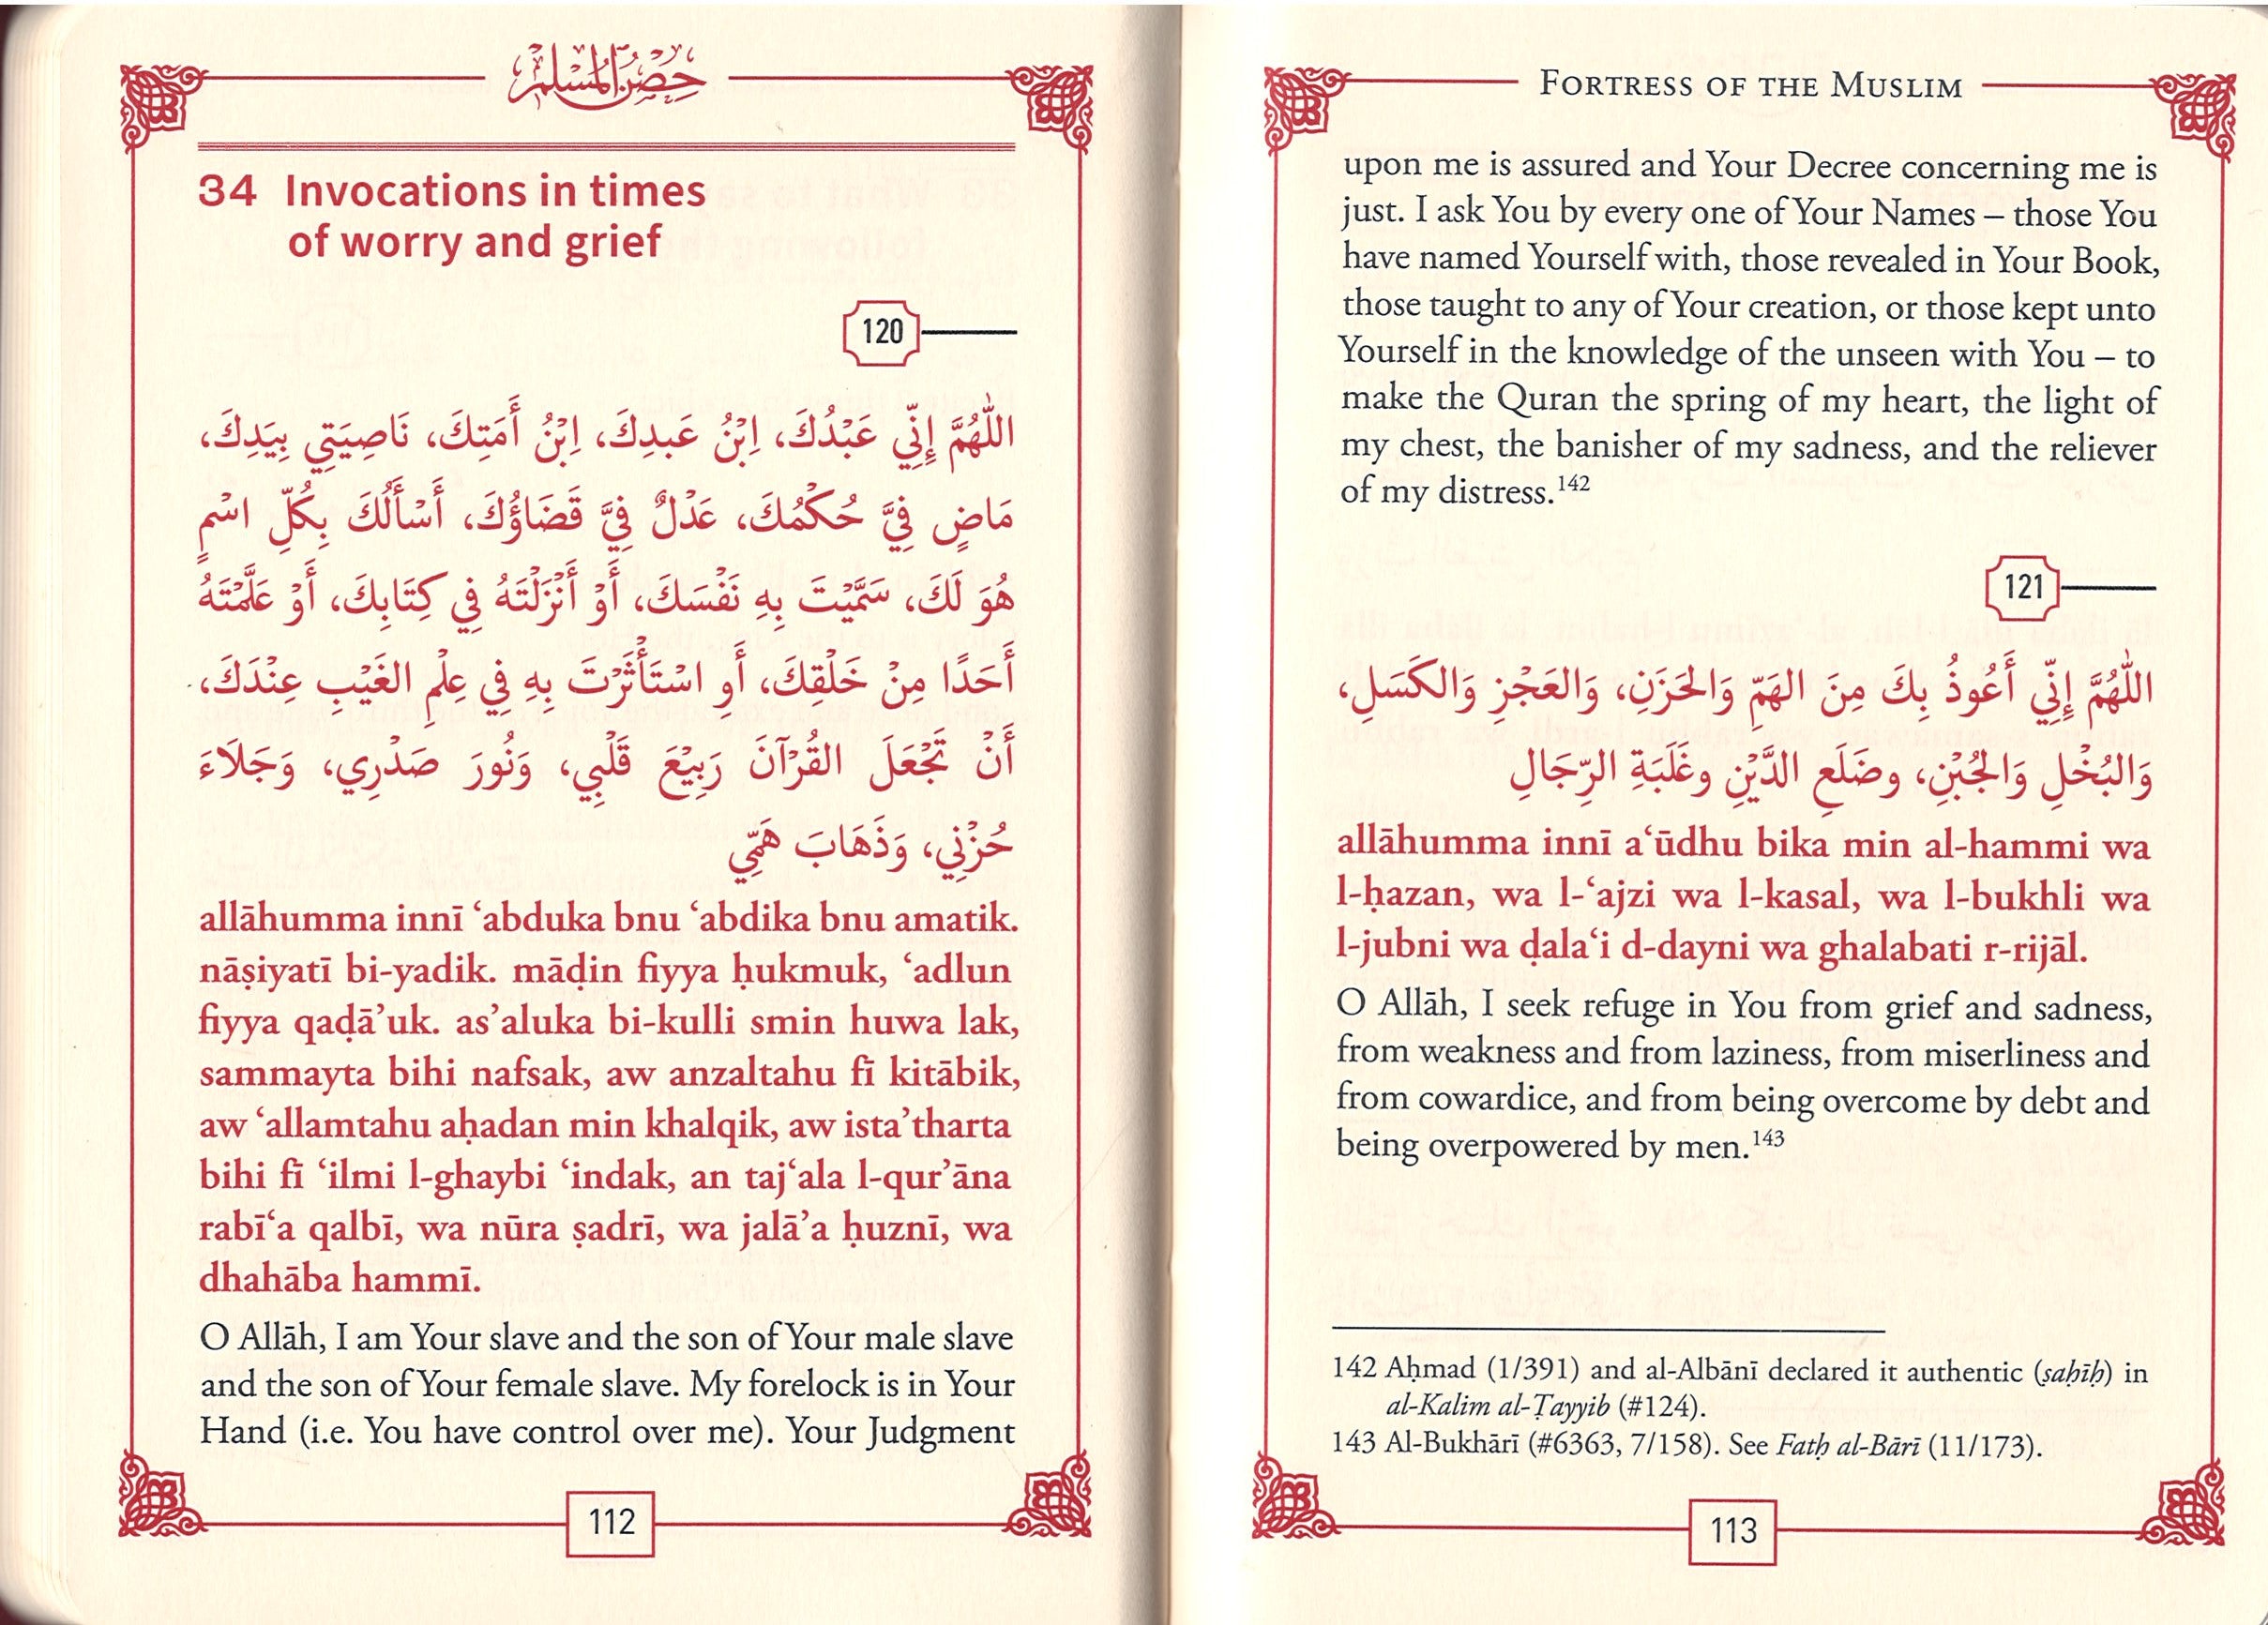 حصن المسلم
34 Invocations in times
of worry and grief
120
اللّٰهُمَّ إِنِّي عَبْدُكَ، اِبْنُ عَبدِكَ، اِبْنُ أَمَتِكَ، نَاصِيَتِي بِيَدِكَ،
مَاضٍ فِيَّ حُكْمُكَ، عَدْلٌ فِيَّ قَضَاؤُكَ، أَسْأَلُكَ بِكُلِّ اسْمٍ
هُوَ لَكَ، سَمَّيْتَ بِهِ نَفْسَكَ، أَوْ أَنْزَلْتَهُ فِي كِتَابِكَ، أَوْ عَلَّمْتَهُ
أَحَدًا مِنْ خَلْقِكَ، أَوِ اسْتَأْثَرْتَ بِهِ فِي عِلْمِ الغَيْبِ عِنْدَكَ،
أَنْ تَجْعَلَ القُرْآنَ رَبِيْعَ قَلْبِي، وَنُورَ صَدْرِي، وَجَلَاءَ
حُزْنِي، وَذَهَابَ هَمِّي
allāhumma innī ‘abduka bnu ‘abdika bnu amatik.
nāṣiyatī bi-yadik. māḍin fiyya ḥukmuk, ‘adlun
fiyya qaḍā’uk. as’aluka bi-kulli smin huwa lak,
sammayta bihi nafsak, aw anzaltahu fī kitābik,
aw ‘allamtahu aḥadan min khalqik, aw ista’tharta
bihi fī ‘ilmi l-ghaybi ‘indak, an taj‘ala l-qur’āna
rabī‘a qalbī, wa nūra ṣadrī, wa jalā’a ḥuznī, wa
dhahāba hammī.
O Allāh, I am Your slave and the son of Your male slave
and the son of Your female slave. My forelock is in Your
Hand (i.e. You have control over me). Your Judgment
112
Fortress of the Muslim
upon me is assured and Your Decree concerning me is
just. I ask You by every one of Your Names – those You
have named Yourself with, those revealed in Your Book,
those taught to any of Your creation, or those kept unto
Yourself in the knowledge of the unseen with You – to
make the Quran the spring of my heart, the light of
my chest, the banisher of my sadness, and the reliever
of my distress.142
121
اللّٰهُمَّ إِنِّي أَعُوذُ بِكَ مِنَ الهَمِّ وَالحَزَنِ، وَالعَجْزِ وَالكَسَلِ،
وَالبُخْلِ وَالجُبْنِ، وضَلَعِ الدَّيْنِ وغَلَبَةِ الرِّجَالِ
allāhumma innī a‘ūdhu bika min al-hammi wa
l-ḥazan, wa l-‘ajzi wa l-kasal, wa l-bukhli wa
l-jubni wa ḍala‘i d-dayni wa ghalabati r-rijāl.
O Allāh, I seek refuge in You from grief and sadness,
from weakness and from laziness, from miserliness and
from cowardice, and from being overcome by debt and
being overpowered by men.143
142 Aḥmad (1/391) and al-Albānī declared it authentic (ṣaḥīḥ) in
al-Kalim al-Ṭayyib (#124).
143 Al-Bukhārī (#6363, 7/158). See Fatḥ al-Bārī (11/173).
113